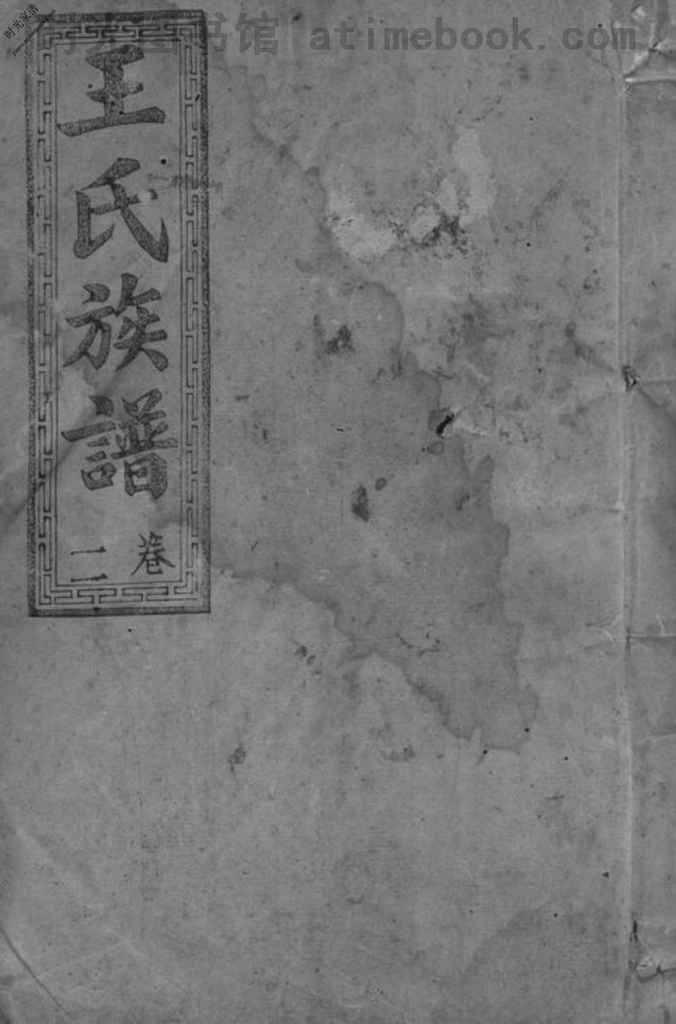 书馆 | atimebook.com
王氏族譜
卷二